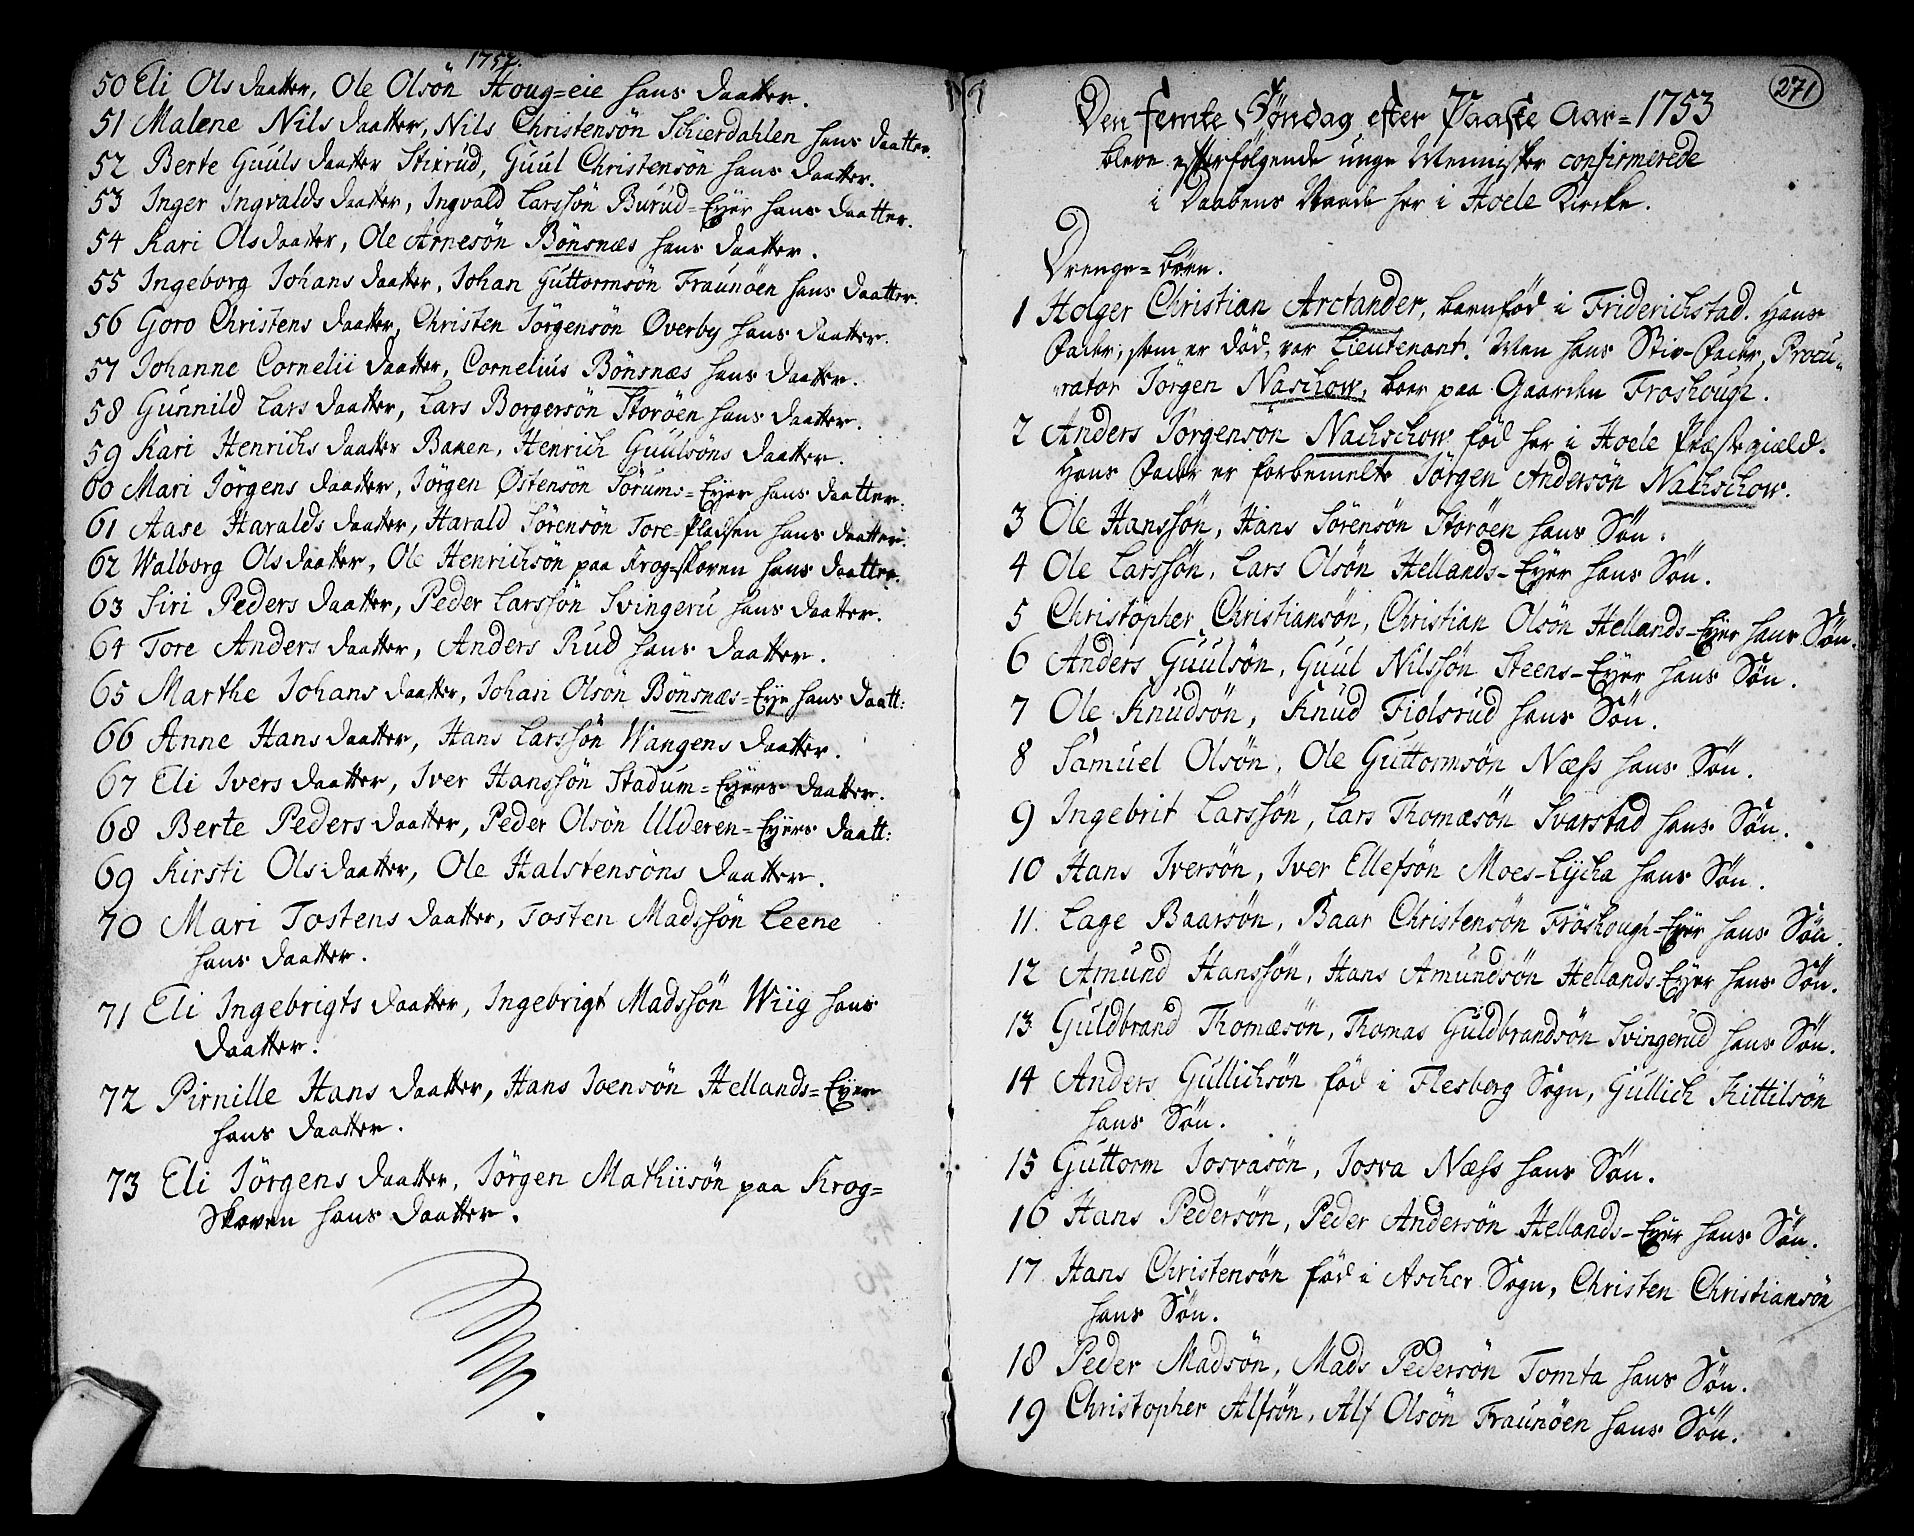 1752.
50 Eli Ols daatter, Ole Olsön Houg=eie hans daatter.
51 Malene Nils daatter, Nils Christensön Schierdahlen hans daatter.
52 Berte Guuls daatter Stixrud, Guul Christensön hans daatter.
53 Inger Ingvalds daatter, Ingvald Larssön Burud=Eyer hans daatter.
54 Kari Olsdaatter, Ole Arnesön Bönsnæs hans daatter.
55 Ingeborg Johans daatter, Johan Guttormsön Fraunöen hans daatter.
56 Goro Christens daatter, Christen Jörgensön Overby hans daatter.
57 Johanne Cornelii daatter, Cornelius Bönsnæs hans daatter.
58 Gunnild Lars daatter, Lars Borgersön Storöen hans daatter.
59 Kari Henrichs daatter Baken, Henrich Guulsöns daatter.
60 Mari Jörgens daatter, Jörgen Østensön Sörums=Eyer hans daatter.
61 Aase Haralds daatter, Harald Sörensön Tore=Pladsen hans daatter.
62 Walborg Olsdaatter, Ole Henrichsön paa Krog=skoven hans daatter.
63 Siri Peders daatter, Peder Larssön Svingeru hans daatter.
64 Tore Anders daatter, Anders Rud hans daatter.
65 Marthe Johans daatter, Johan Olsön Bönsnæs=Eye hans daatt:
66 Anne Hansdaatter, Hans Larssön Wangens daatter.
67 Eli Ivers daatter, Iver Hanssön Stadum=Eyers daatter.
68 Berte Peders daatter, Peder Olsön Ulderen=Eyers daatt:
69 Kirsti Olsdaatter, Ole Halstensöns daatter.
70 Mari Tostens daatter, Tosten Madssön Leene
hans daatter.
71 Eli Ingebrigts daatter, Ingebrigt Madssön Wiig hans
daatter.
72 Pirnille Hans daatter, Hans Joensön Hellands=Eyer
hans daatter.
73 Eli Jörgens daatter, Jörgen Mathiisön paa Krog=
Skoven hans daatter.
271
Den femte Søndag efter Paaske Aar=1753
bleve efterfölgende unge Mennisker confirmerede
i Daabens Naade her i Hoele Kircke.
Drenge=börn.
1 Holger Christian Arctander, barnfød i Friderichstad. Hans
Fader, som er död, var Lieutenant. Men hans Stiv-Fader, Procu-
rator Jörgen Naschow, boer paa Gaarden Froshough.
2 Anders Jörgensön Nachschow fød her i Hoele Præstegiæld.
Hans Fader er forbemelte Jörgen Andersön Nachschow.
3 Ole Hanssön, Hans Sörensön Storöen hans Sön.
4 Ole Larssön, Lars Olsön Hellands-Eyer hans Sön.
5 Christopher Christiansön, Christian Olsön Hellands-Eyer hans Sön.
6 Anders Guulsön, Guul Nilssön Steens-Eyer hans Sön.
7 Ole Knudsön, Knud Fiolsrud hans Sön.
8 Samuel Olsön, Ole Guttormsön Næss hans Sön.
9 Ingebrit Larssön, Lars Thomæsön Svarstad hans Sön.
10 Hans Iversön, Iver Ellefsön Moes-Lycka hans Sön.
11. Lage Baarsön, Baar Christensön Fröshough-Eyer hans Sön.
12 Amund Hanssön, Hans Amundsön Hellands-Eyer hans Sön.
13 Guldbrand Thomæsön, Thomas Guldbrandsön Svingerud hans Sön.
14 Anders Gullichsön fød i Flesberg Sogn, Gullich Kittilsön
hans Sön.
15 Guttorm Josvasön, Josva Næss hans Sön.
16 Hans Pedersön, Peder Andersön Hellands-Eyer hans Sön.
17. Hans Christensön fød i Ascher Sogn, Christen Christiansön
hans Sön.
18 Peder Madsön, Mads Pedersön Tomta hans Sön.
19 Christopher Alfsön, Alf Olsön Fraunöen hans Sön.